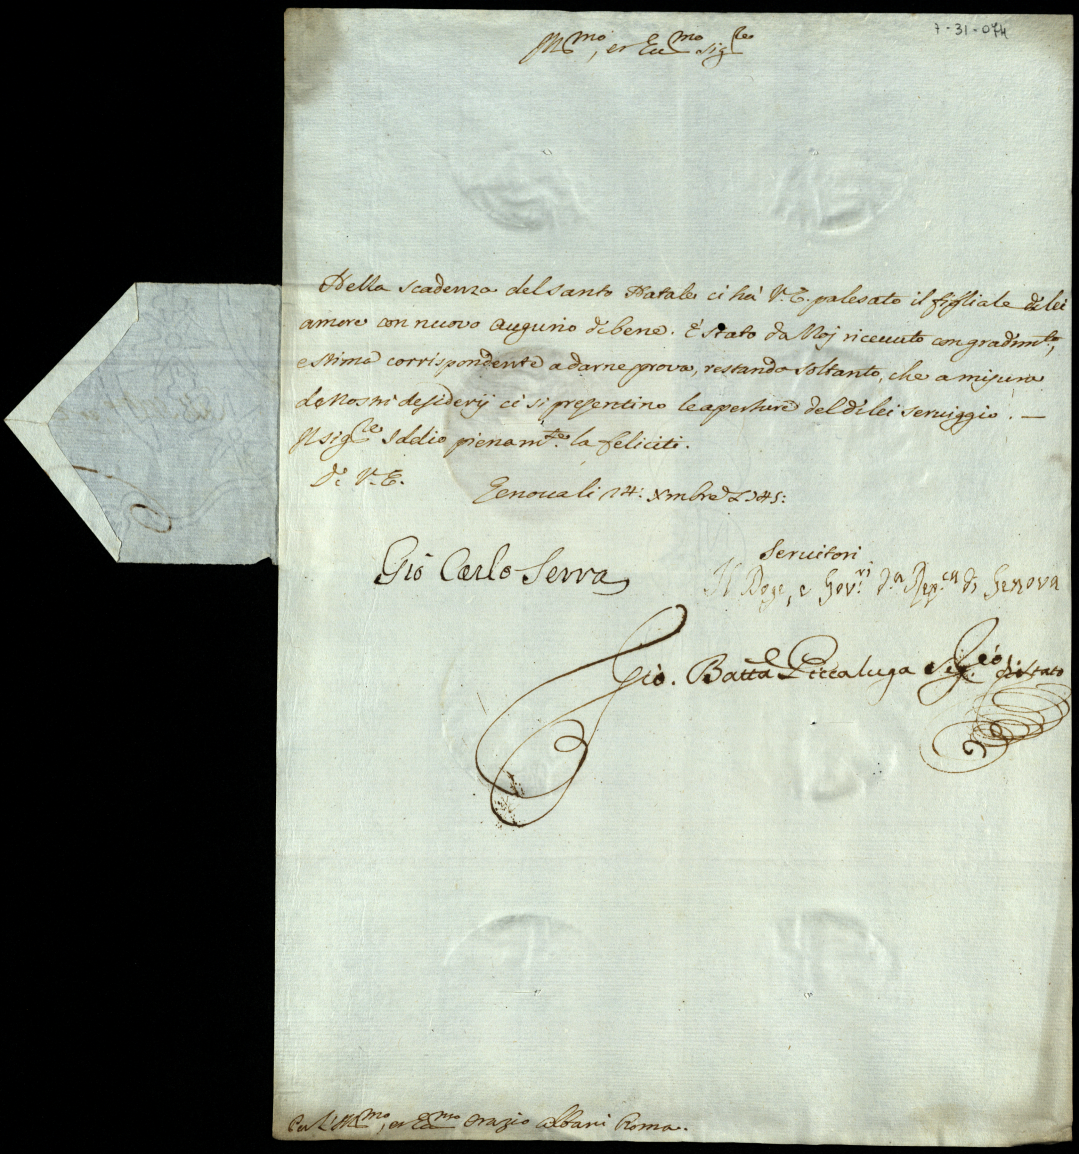 7-31-074
Ill.mo, et Ecc.mo Sig.re
Nella scadenza del santo Natale ci hà V.E. palesato il figliale di lei
amore con nuovo augurio di bene. È stato da Noj riceuuto con gradim.to,
e stima corrispondente a darne prova, restando soltanto, che a misura
de Nostri desiderij ci si presentino le aperture del di lei seruiggio. —
Il sig.re Iddio pienam.te la feliciti.
Di V.E.
Genoua li 24: Xmbre 1745:
Seruitori
Il Doge, e Gov.ri d.a Rep.ca di Genova
Giò Carlo Serra
Giò. Batta Piccaluga Seg.rio di Stato
Per l'Ill.mo, et Ecc.mo Orazio Albani Roma.